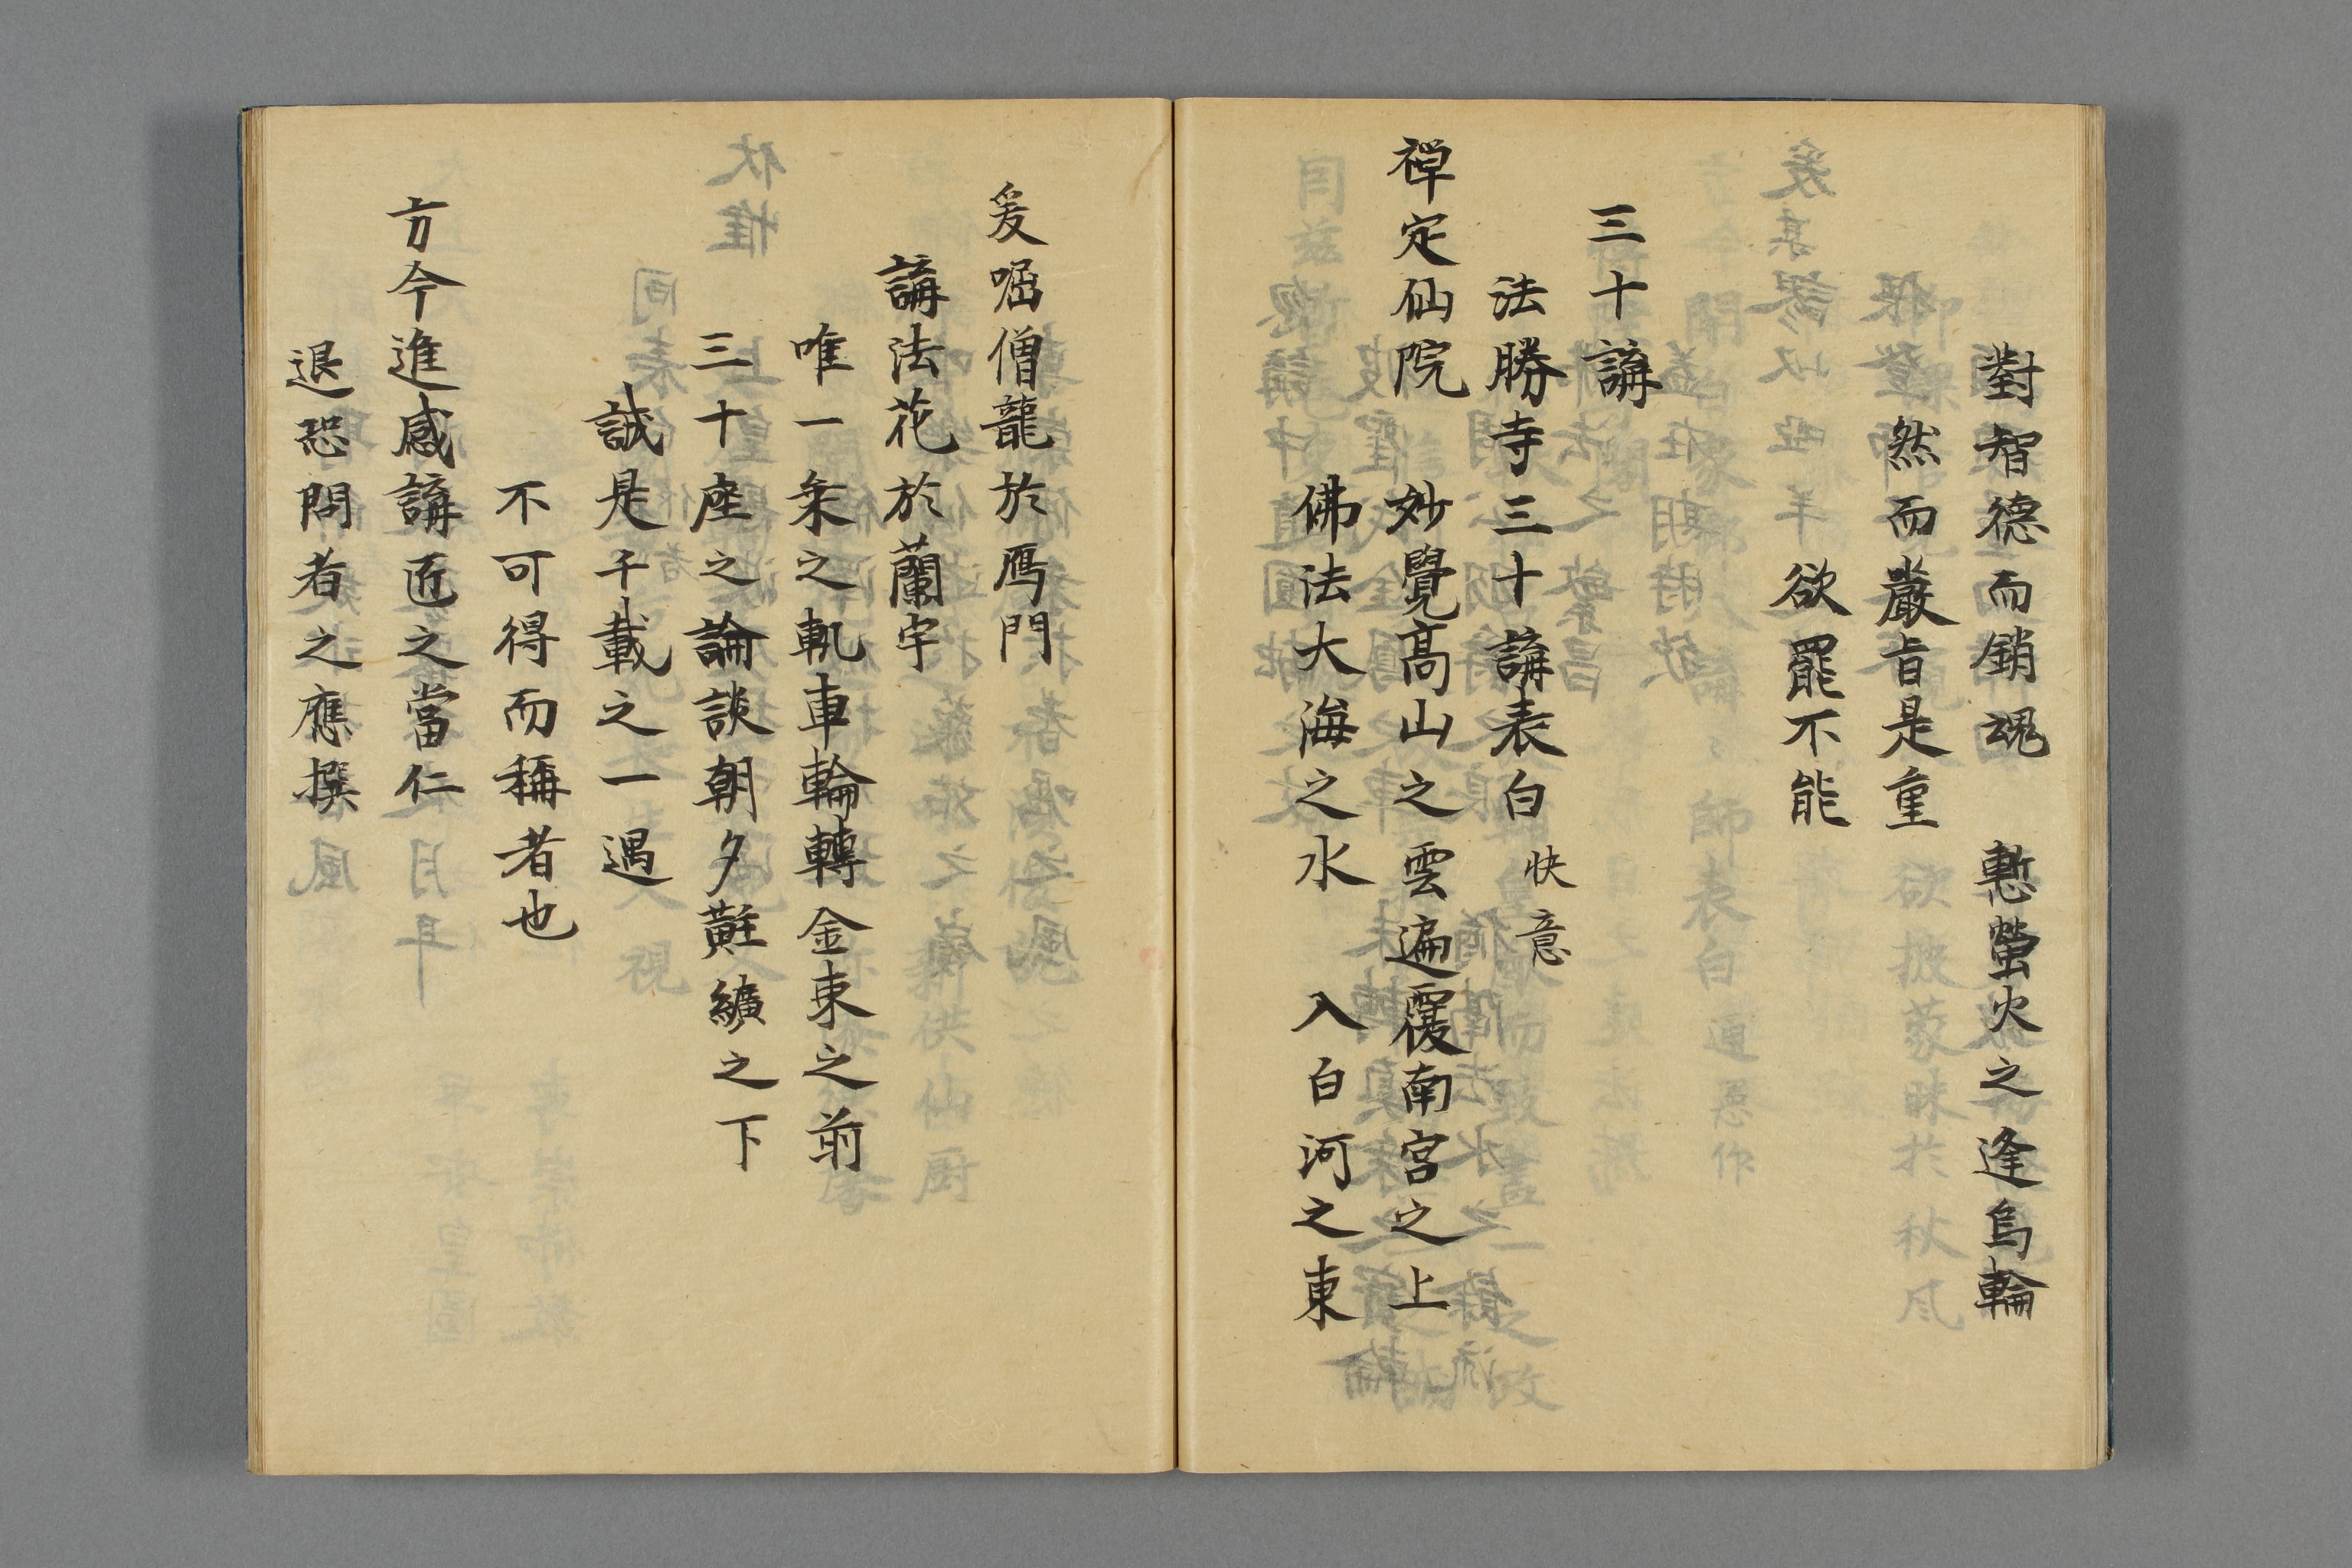 對智德而銷魂　慙螢火之逢烏輪
然而嚴旨是重
欲罷不能
三十講
法勝寺三十講表白　快意
禅定仙院　妙覺高山之雲遍覆南宮之上
佛法大海之水　入白河之東
爰啒僧龍於鴈門
講法花於蘭宇
唯一乗之軌車輪轉金東之前
三十座之論談朝夕黈纊之下
誠是千載之一遇
不可得而稱者也
方今進感講匠之當仁
退恐問者之應撰